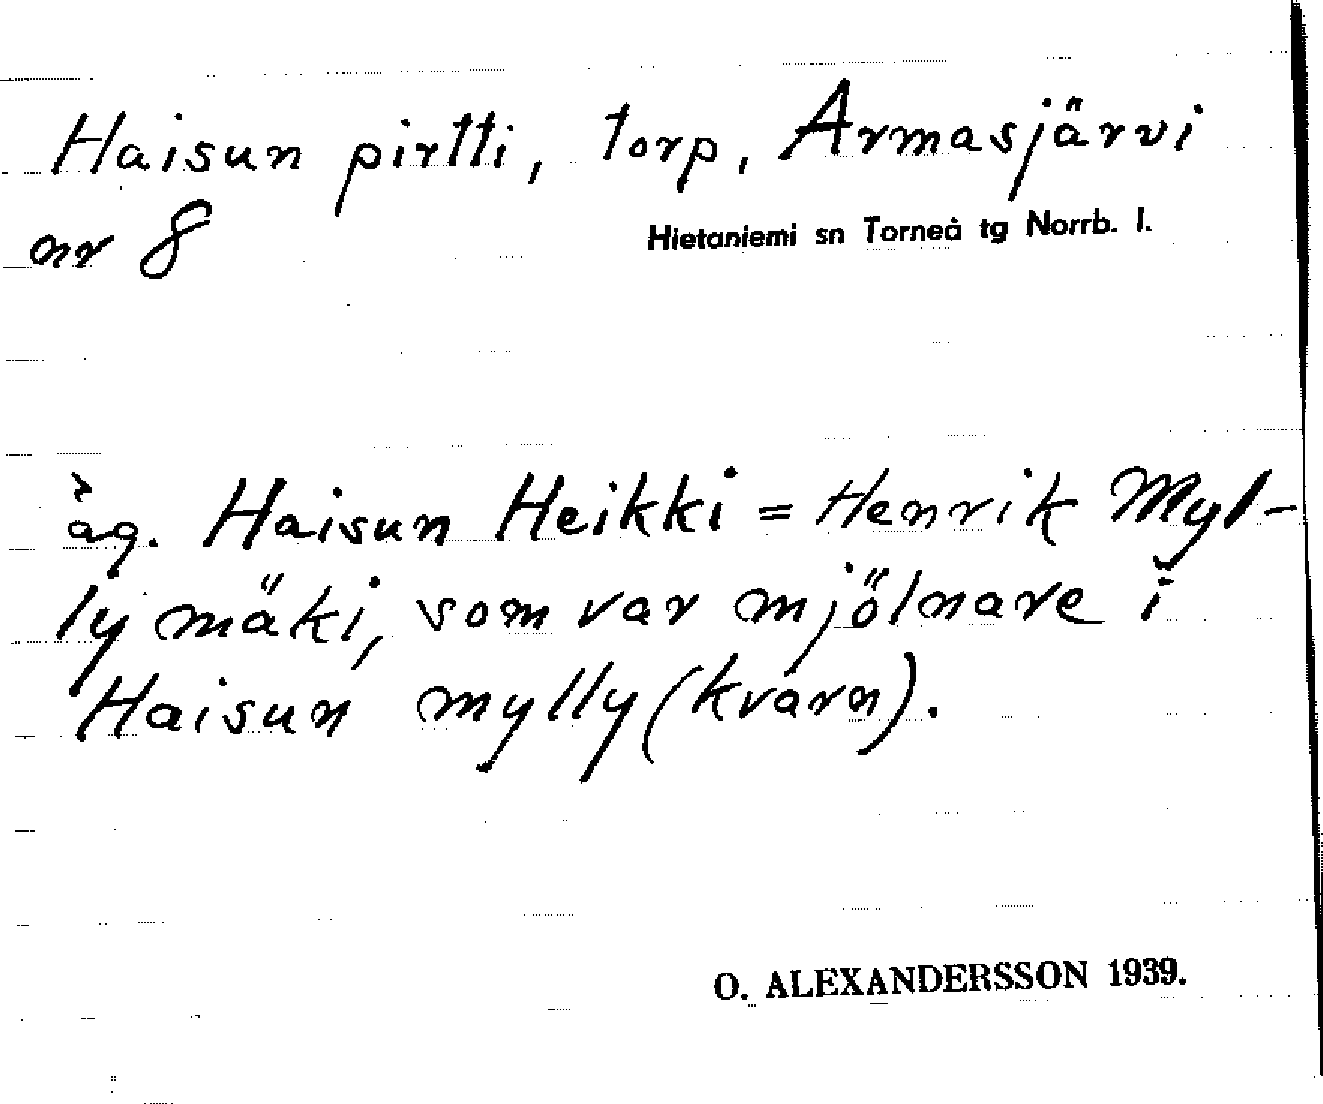 Haisun pirtti, torp, Armasjärvi
nr 8
Hietaniemi sn Torneå tg Norrb. l.
äg. Haisun Heikki = Henrik Myl-
lymäki, som var mjölnare i
Haisun mylly (kvarn).
O. ALEXANDERSSON 1939.